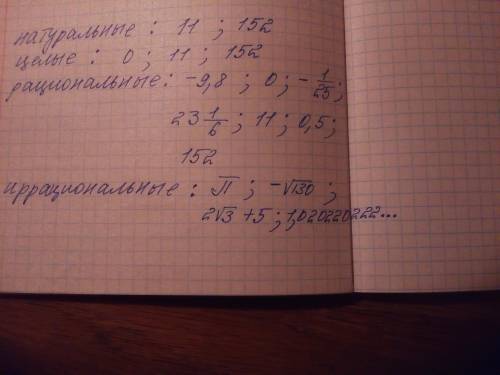 натуральные : 11 ; 152
целые : 0 ; 11 ; 152
рациональные : -9,8 ; 0 ; -1/25 ;
23 1/6 ; 11 ; 0,5 ;
152
иррациональные : П ; -√130 ;
2√3 + 5 ; 1,020220222...